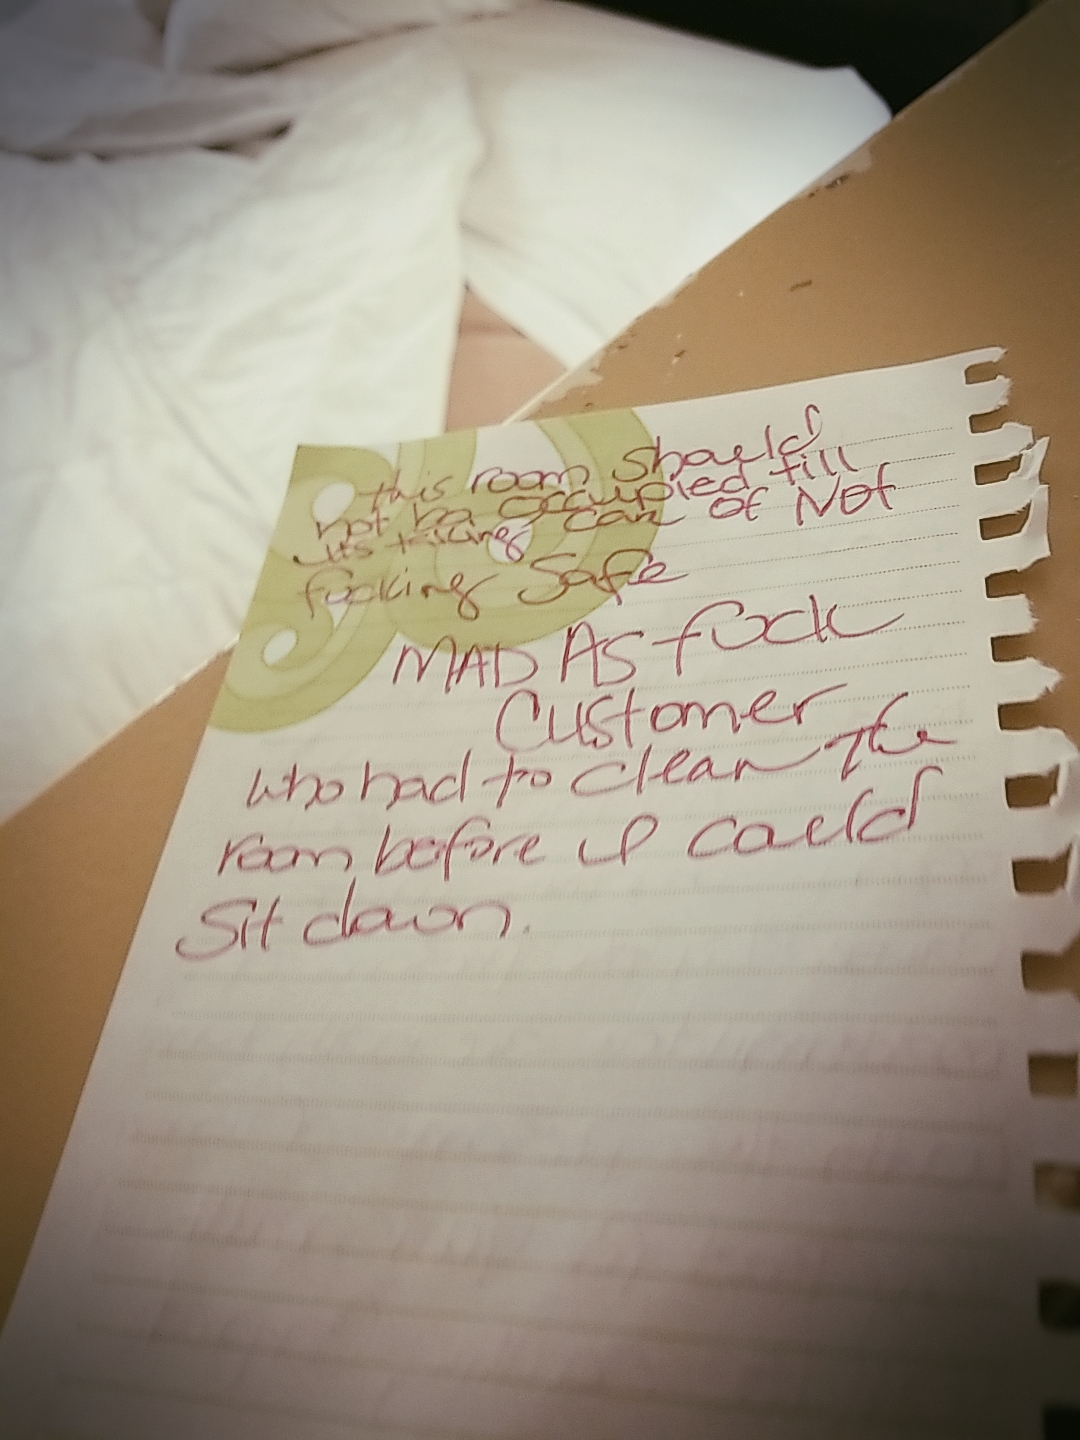 this room should
not be occupied till
its taking care of Not
fucking Safe
MAD AS fuck
Customer
who had to clean The
room before I could
Sit down.